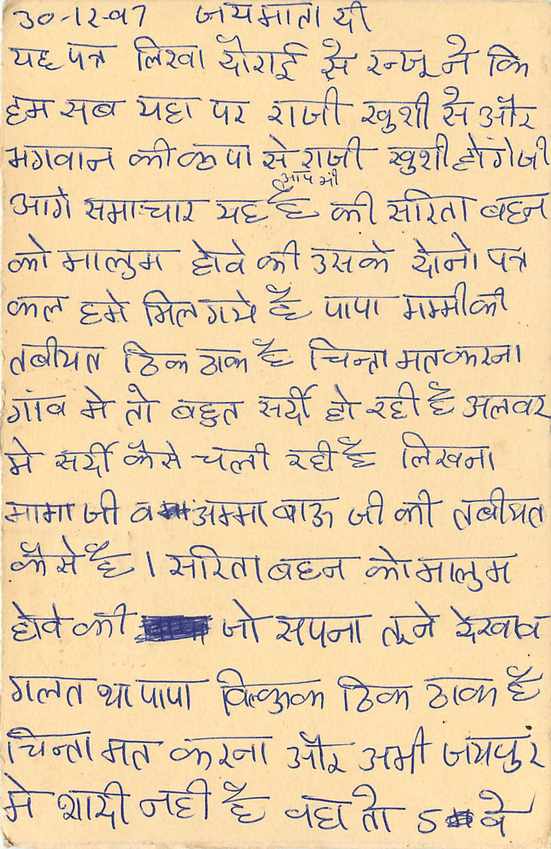 30-12-97 जय माता दी
यह पत्र लिखा दौराई से रन्जू ने कि
हम सब यहा पर राजी खुशी से और
भगवान की कृपा से राजी खुशी होंगे जी
आप भी
आगे समाचार यह है की सरिता बहन
को मालुम होवे की उसके दोनो पत्र
कल हमे मिल गये है पापा मम्मी की
तबीयत ठिक ठाक है चिन्ता मत करना
गांव मे तो बहुत सर्दी हो रही है अलवर
मे सर्दी कैसे चली रही है लिखना
मामा जी व अम्मा बाऊ जी की तबीयत
कैसे है । सरिता बहन को मालुम
होवे की जो सपना तूने देखा व
गलत था पापा विल्कुल ठिक ठाक है
चिन्ता मत करना और अभी जयपुर
मे शादी नही है वह तो 5 वे